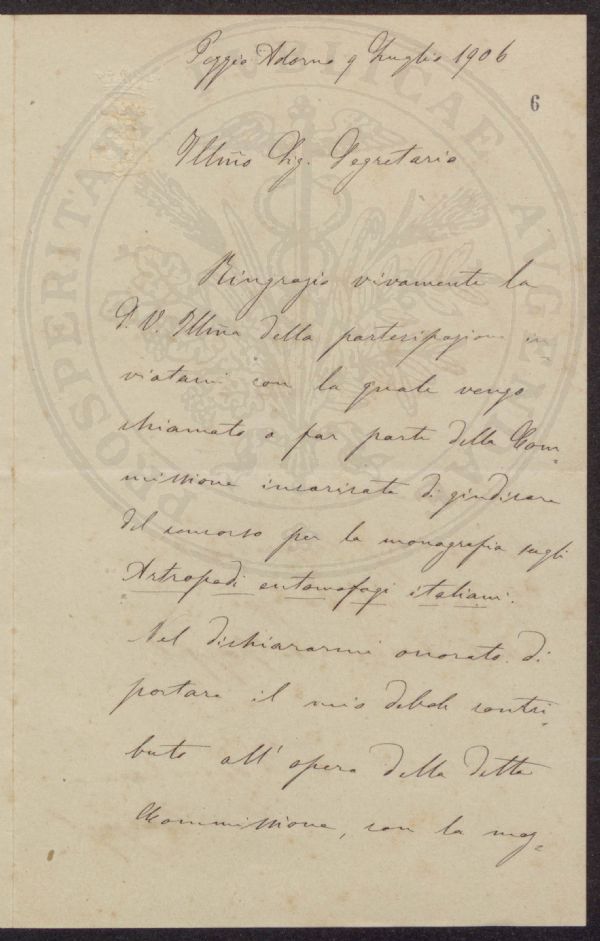 Poggio Adorno 9 Luglio 1906
6
Illmo Sig. Segretario
Ringrazio vivamente la
S. V. Illma della partecipazione in
viatami con la quale vengo
chiamato a far parte della Com=
missione incaricata di giudicare
del concorso per la monografia sugli
Artropodi entomofagi italiani.
Nel dichiararmi onorato di
portare il mio debole contri=
buto all' opera della detta
Commissione, con la mas=
PROSPERITATI PUBLICAE AUGENDAE